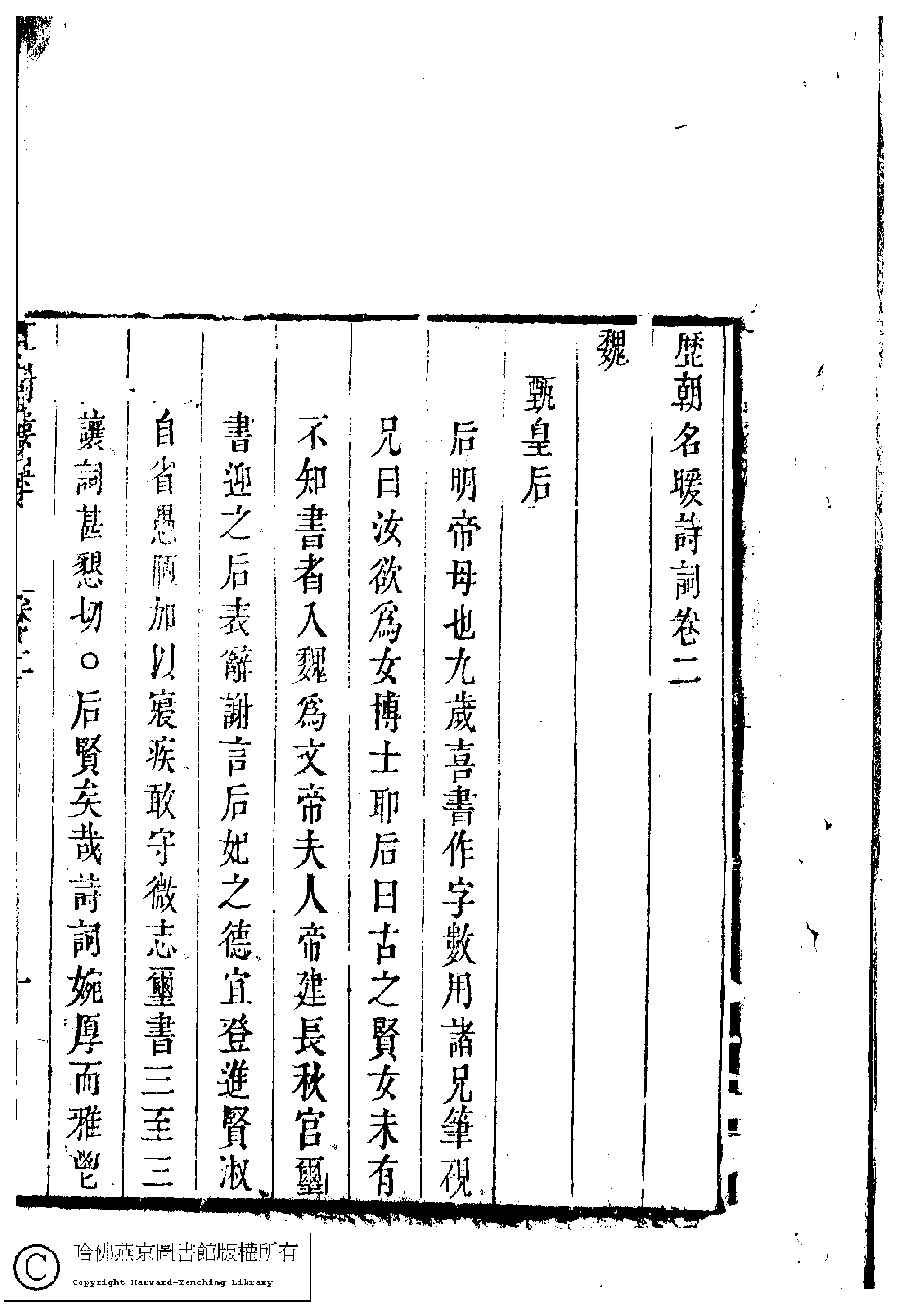 歷朝名媛詩詞卷二
魏
甄皇后
后明帝母也九歲喜書作字數用諸兄筆硯
兄曰汝欲爲女博士耶后曰古之賢女未有
不知書者入魏爲文帝夫人帝建長秋宮璽
書迎之后表辭謝言后妃之德宜登進賢淑
自省愚陋加以寢疾敢守微志璽書三至三
讓詞甚懇切○后賢矣哉詩詞婉厚而雅
卷之二
哈佛燕京圖書館版權所有
Copyright Harvard-Yenching Library